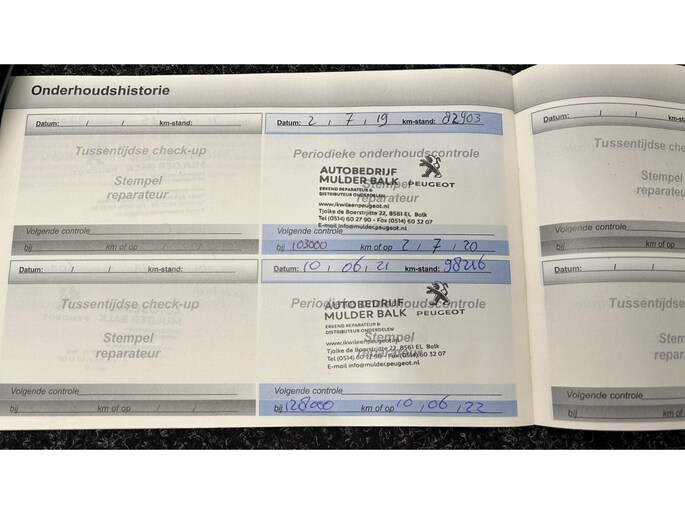 Onderhoudshistorie
Datum: / / km-stand:
Tussentijdse check-up
Stempel
reparateur
Volgende controle
bij km of op / /
Datum: 2 / 7 / 19 km-stand: 82903
Periodieke onderhoudscontrole
AUTOBEDRIJF
MULDER BALK
PEUGEOT
Stempel
reparateur
ERKEND REPARATEUR &
DISTRIBUTEUR ONDERDELEN
www.ikwileenpeugeot.nl
Tjalke de Boerstrjitte 22, 8561 EL Balk
Tel (0514) 60 27 90 - Fax (0514) 60 32 07
E-mail info@mulder.peugeot.nl
Volgende controle
bij 103000 km of op 2 / 7 / 20
Datum: / / km-stand:
Tussentijdse check-up
Stempel
reparateur
Volgende controle
bij km of op / /
Datum: 10 / 06 / 21 km-stand: 98216
Periodieke onderhoudscontrole
AUTOBEDRIJF
MULDER BALK
PEUGEOT
Stempel
reparateur
ERKEND REPARATEUR &
DISTRIBUTEUR ONDERDELEN
www.ikwileenpeugeot.nl
Tjalke de Boerstrjitte 22, 8561 EL Balk
Tel (0514) 60 27 90 - Fax (0514) 60 32 07
E-mail info@mulder.peugeot.nl
Volgende controle
bij 128000 km of op 10 / 06 / 22
Datum: / /
Tussentijdse
Stem
repara
Volgende controle
bij km of op
Datum: / /
Tussentijdse
Stem
repar
Volgende controle
bij km of op